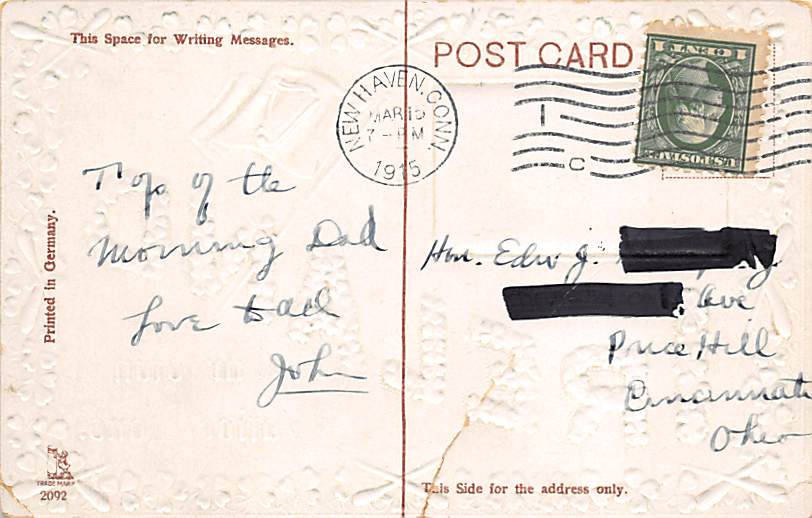 This Space for Writing Messages.
POST CARD
NEW HAVEN, CONN.
MAR 15
7 - PM
1915
C
U.S. POSTAGE
1 CENT 1
Top of the
Morning Dad
Love to all
John
Hon. Edw J.
Ave
Price Hill
Cincinnati
Ohio
Printed in Germany.
TRADE MARK
2092
This Side for the address only.